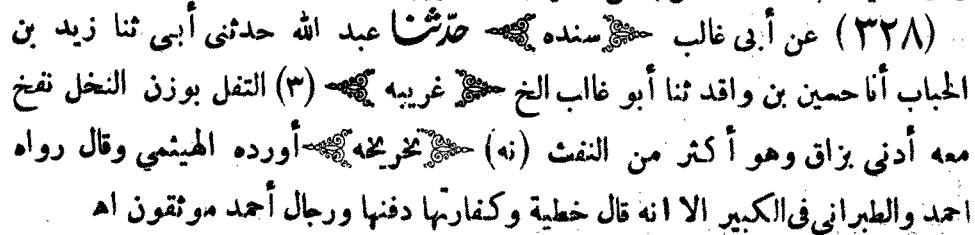 (٣٢٨) عن أبى غالب ﴿سنده﴾ حدّثنا عبد الله حدثنى أبى ثنا زيد بن
الحباب أنا حسين بن واقد ثنا أبو غالب الخ ﴿غريبه﴾ (٣) التفل بوزن النخل نفخ
معه أدنى بزاق وهو أكثر من النفث (نه) ﴿تخريجه﴾ أورده الهيثمي وقال رواه
احمد والطبرانى فى الكبير الا انه قال خطية وكفارتها دفنها ورجال أحمد موثقون اه